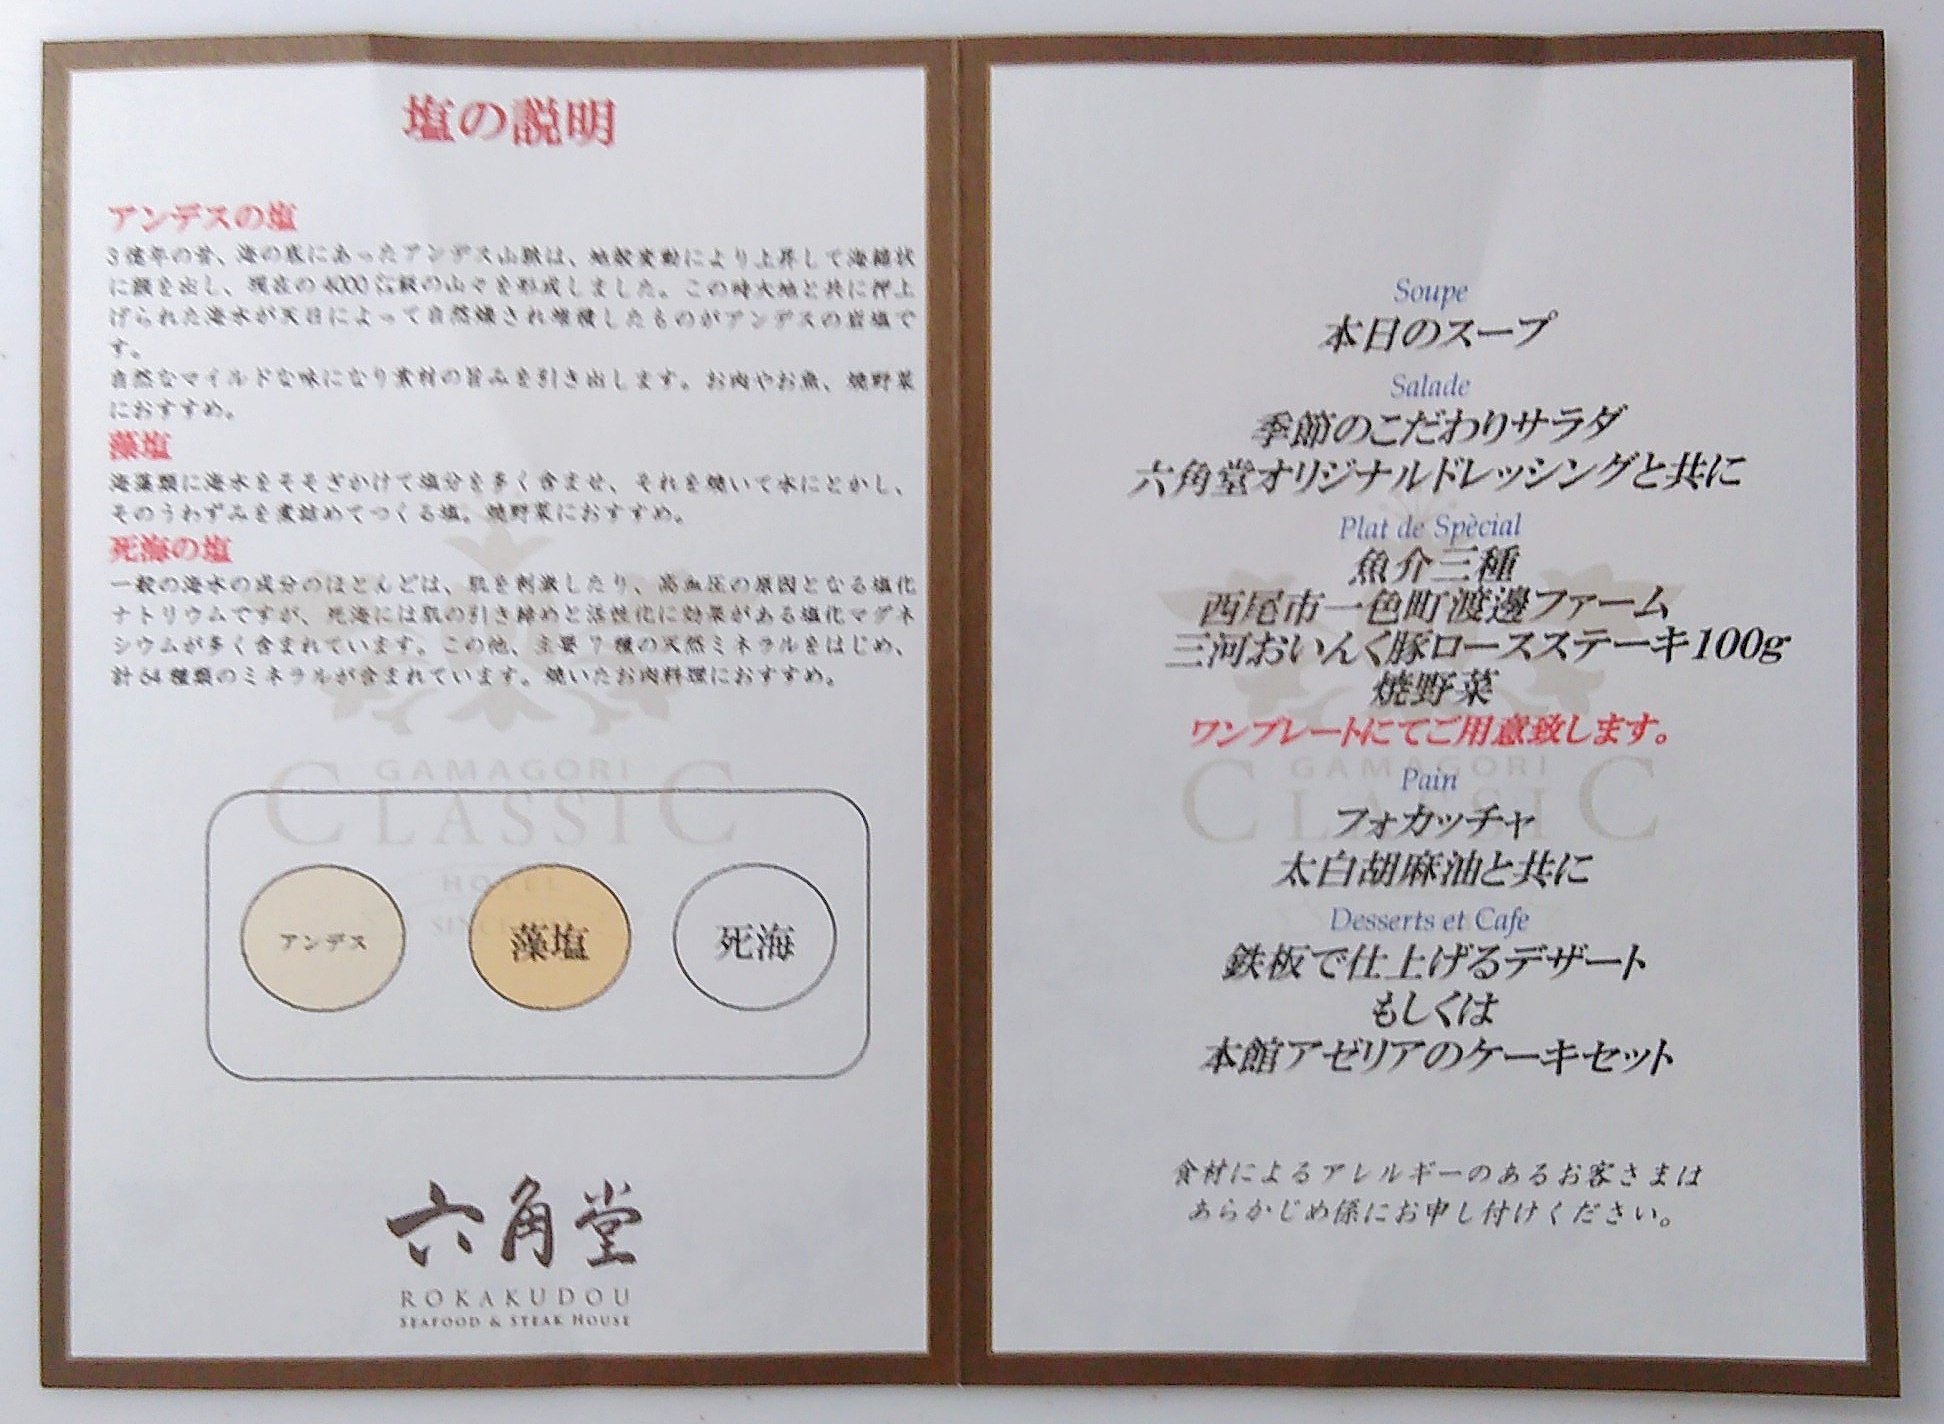 塩の説明
アンデスの塩
3億年の昔、海の底にあったアンデス山脈は、地殻変動により上昇して海鏥状
に顔を出し、現在の4000㍍級の山々を形成しました。この時大地と共に押上
げられた海水が天日によって自然燥され堆積したものがアンデスの岩塩で
す。
自然なマイルドな味になり素材の旨みを引き出します。お肉やお魚、焼野菜
におすすめ。
藻塩
海藻類に海水をそそぎかけて塩分を多く含ませ、それを焼いて水にとかし、
そのうわずみを煮詰めてつくる塩。焼野菜におすすめ。
死海の塩
一般の海水の成分のほとんどは、肌を刺激したり、高血圧の原因となる塩化
ナトリウムですが、死海には肌の引き締めと活性化に効果がある塩化マグネ
シウムが多く含まれています。この他、主要7種の天然ミネラルをはじめ、
計64種類のミネラルが含まれています。焼いたお肉料理におすすめ。
GAMAGORI
CLASSIC
HOTEL
アンデス
藻塩
死海
六角堂
ROKAKUDOU
SEAFOOD & STEAK HOUSE
Soupe
本日のスープ
Salade
季節のこだわりサラダ
六角堂オリジナルドレッシングと共に
Plat de Spècial
魚介三種
西尾市一色町渡邊ファーム
三河おいんく豚ロースステーキ100g
焼野菜
ワンプレートにてご用意致します。
GAMAGORI
CLASSIC
Pain
フォカッチャ
太白胡麻油と共に
Desserts et Cafe
鉄板で仕上げるデザート
もしくは
本館アゼリアのケーキセット
食材によるアレルギーのあるお客さまは
あらかじめ係にお申し付けください。